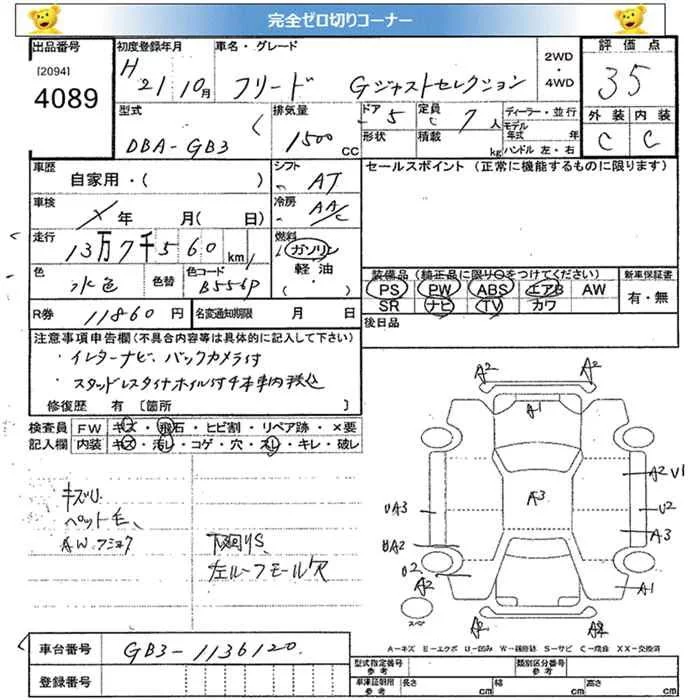 完全ゼロ切りコーナー
出品番号 初度登録年月 車名・グレード 2WD・4WD 評価点
[2094] 4089 H 21 10月 フリード Gジャストセレクション 35
型式 排気量 ドア 5 定員 7 人 ディーラー・並行 外装 内装
DBA-GB3 1500 CC 形状 積載 kg モデル年式 年 C C
ハンドル 左・右
車歴 自家用・( ) シフト AT セールスポイント (正常に機能するものに限ります)
車検 年 月( 日) 冷房 AA/C
走行 13万7千560 km 燃料 ガソリン
軽油
・( )
色 水色 色替 色コード B556P 装備品 (純正品に限り○をつけてください) 新車保証書
PS PW ABS エアB AW 有・無
SR ナビ TV カワ
R券 11860 円 名変通知期限 月 日 後日品
注意事項申告欄 (不具合内容等は具体的に記入して下さい)
・インターナビ、バックカメラ付
・スタッドレスタイヤホイル付4本車内積込
修復歴 有 [箇所 ]
検査員 FW キズ・飛石・ヒビ割・リペア跡・×要
記入欄 内装 キズ・汚レ・コゲ・穴・スレ・キレ・破レ
キズU
ペット毛、
AW
下回りS
左ルーフモール穴
A2 A2
A1
A2 V1
A3
UA3 U2
A3
BA2
U2
A2 A1
スペ
A2 A2
A-キズ E-エクボ U-凹み W-補修跡 S-サビ C-腐食 XX-交換済
車台番号 GB3-1136120
登録番号
型式指定番号 参考 類別区分番号 参考
車庫証明用 参考 長さ cm 幅 cm 高さ cm